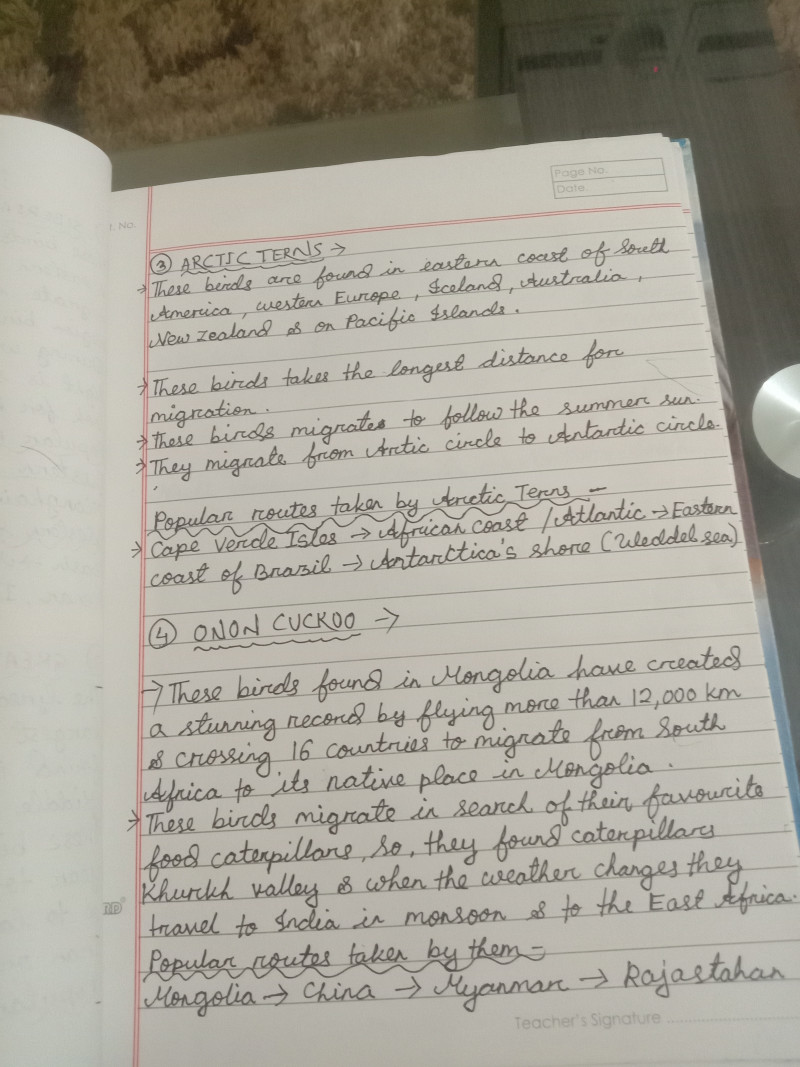 Page No.
Date.
1. No.
③ ARCTIC TERNS →
→ These birds are found in eastern coast of South
America, western Europe, Iceland, Australia,
New Zealand & on Pacific Islands.
→ These birds takes the longest distance for
migration.
→ These birds migrates to follow the summer sun.
→ They migrate from Arctic circle to Antartic circle.
Popular routes taken by Arctic Terns –
→ Cape Verde Isles → African coast / Atlantic → Eastern
coast of Brazil → Antarttica's shore (Weddel sea)
④ ONON CUCKOO →
→ These birds found in Mongolia have created
a stunning record by flying more than 12,000 km
& crossing 16 countries to migrate from South
Africa to its native place in Mongolia.
→ These birds migrate in search of their favourite
food caterpillars, so, they found caterpillars
Khurkh valley & when the weather changes they
travel to India in monsoon & to the East Africa.
Popular routes taken by them –
Mongolia → China → Myanmar → Rajastahan
Teacher's Signature